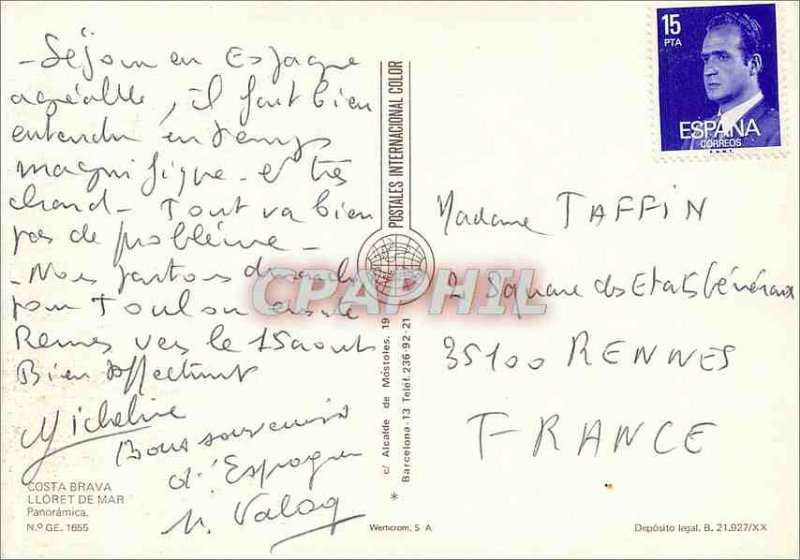 - Séjour en Espagne
agréable, il fait bien
entendu un temps
magnifique - et très
chaud - Tout va bien
pas de problème -
- Nous partons dimanche
pour Toulon ensuite
Rennes vers le 15 aout
Bien affectueusement
Micheline
Bons souvenirs
d'Espagne
COSTA BRAVA
LLORET DE MAR
Panorámica.
N.º GE. 1655
POSTALES INTERNACIONAL COLOR
c/ Alcalde de Móstoles, 19
Barcelona-13 Teléf. 236-92-21
Werticrom, S A.
CPAPHIL
15
PTA
ESPAÑA
CORREOS
F.N.M.T.
Madame TAFFIN
2 Square des Etats Généraux
35100 RENNES
FRANCE
Depósito legal. B. 21.927/XX